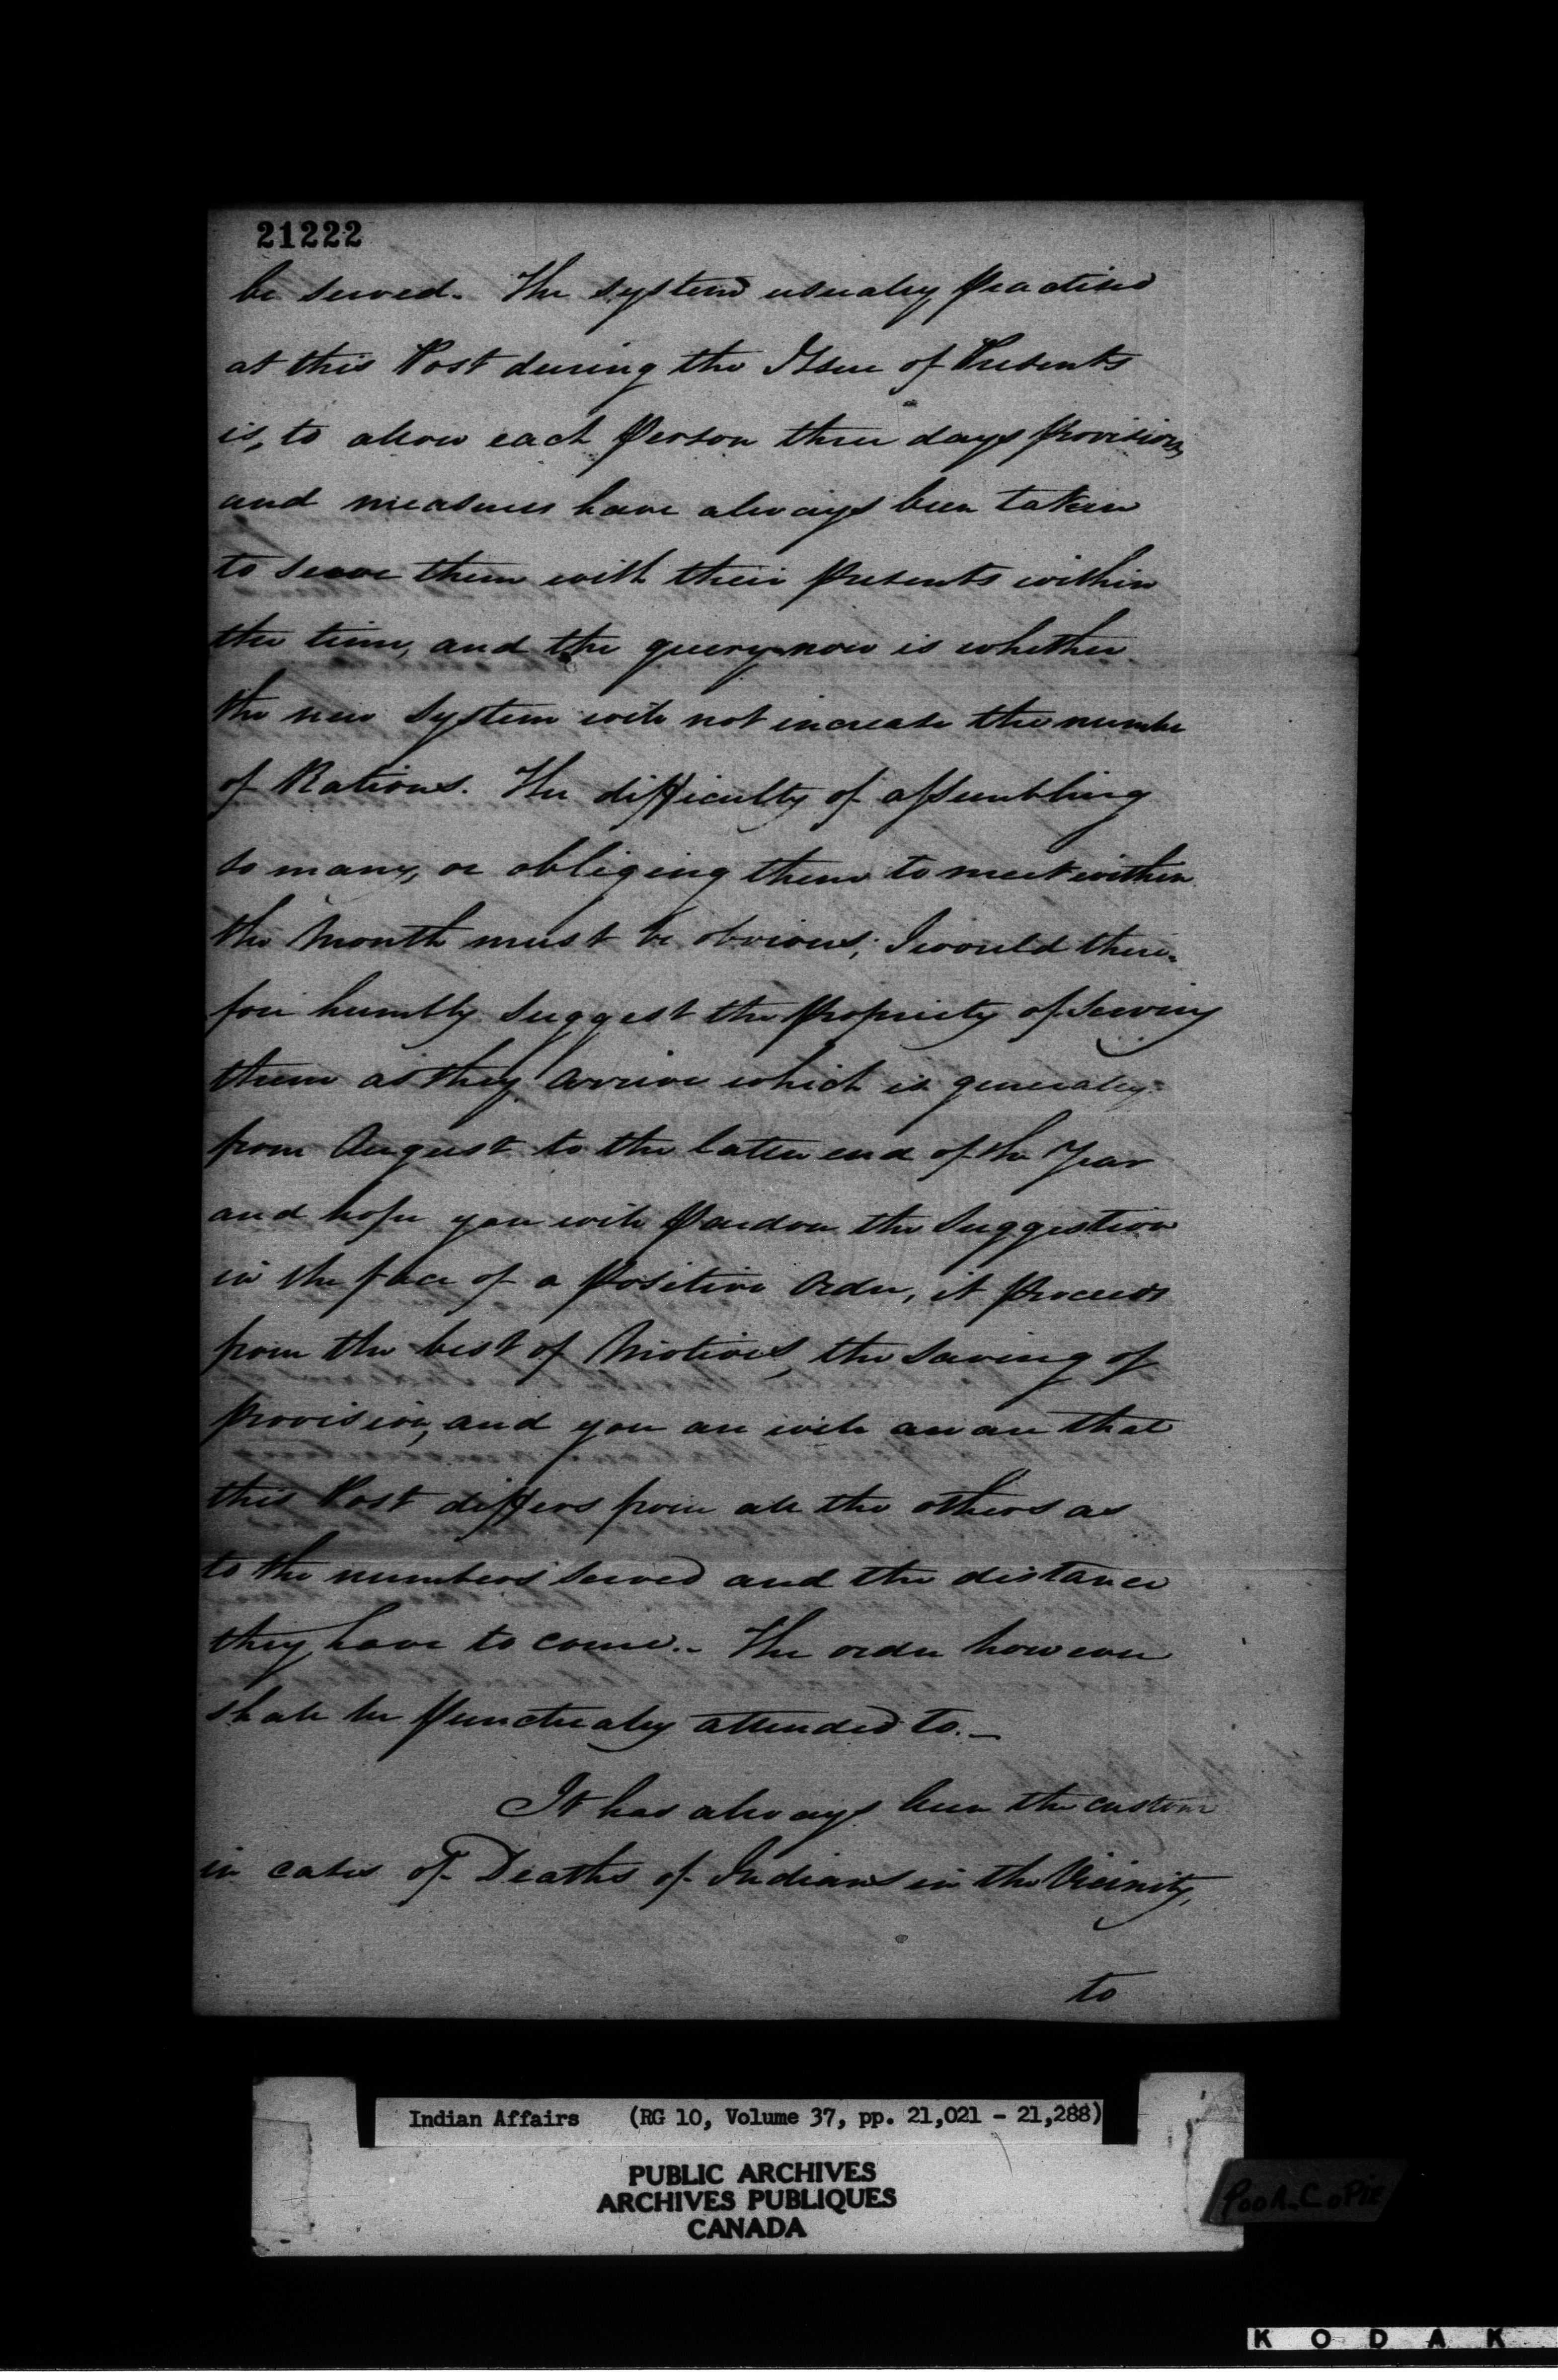 21222
be served. The system usually practised
at this Post during the Issue of Presents
is, to allow each person three days provisions,
and measures have always been taken
to serve them with their presents within
the time, and the query now is whether
the new system will not increase the number
of Rations. The difficulty of assembling
so many, or obliging them to meet within
the Month must be obvious; I would there-
fore humbly suggest the propriety of serving
them as they arrive which is generally
from August to the latter end of the Year
and hope you will pardon the suggestion
in the face of a positive Order, it proceeds
from the best of Motives, the saving of
provision, and you are well aware that
this Post differs from all the others as
to the numbers served and the distance
they have to come.- The order however
shall be punctually attended to.-
It has always been the custom
in cases of Deaths of Indians in the Vicinity,
to
Indian Affairs (RG 10, Volume 37, pp. 21,021 - 21,288)
PUBLIC ARCHIVES
ARCHIVES PUBLIQUES
CANADA
Poor Copie
KODAK